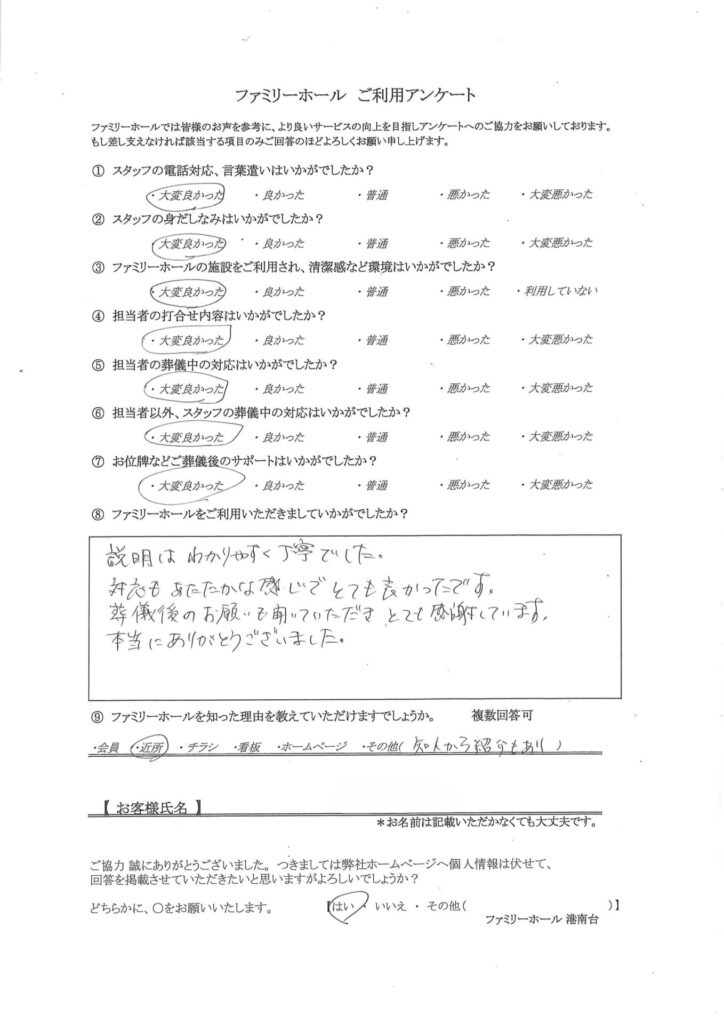 ファミリーホール ご利用アンケート
ファミリーホールでは皆様のお声を参考に、より良いサービスの向上を目指しアンケートへのご協力をお願いしております。
もし差し支えなければ該当する項目のみご回答のほどよろしくお願い申し上げます。
① スタッフの電話対応、言葉遣いはいかがでしたか？
・大変良かった ・良かった ・普通 ・悪かった ・大変悪かった
② スタッフの身だしなみはいかがでしたか？
大変良かった ・良かった ・普通 ・悪かった ・大変悪かった
③ ファミリーホールの施設をご利用され、清潔感など環境はいかがでしたか？
・大変良かった ・良かった ・普通 ・悪かった ・利用していない
④ 担当者の打合せ内容はいかがでしたか？
・大変良かった ・良かった ・普通 ・悪かった ・大変悪かった
⑤ 担当者の葬儀中の対応はいかがでしたか？
・大変良かった ・良かった ・普通 ・悪かった ・大変悪かった
⑥ 担当者以外、スタッフの葬儀中の対応はいかがでしたか？
・大変良かった ・良かった ・普通 ・悪かった ・大変悪かった
⑦ お位牌などご葬儀後のサポートはいかがでしたか？
・大変良かった ・良かった ・普通 ・悪かった ・大変悪かった
⑧ ファミリーホールをご利用いただきましていかがでしたか？
説明は わかりやすく丁寧でした。
対応も あたたかな感じで とても良かったです。
葬儀後の お願いも聞いていただき とても 感謝しています。
本当にありがとうございました。
⑨ ファミリーホールを知った理由を教えていただけますでしょうか。 複数回答可
・会員 ・近所 ・チラシ ・看板 ・ホームページ ・その他( 知人から紹介もあり )
【 お客様氏名 】
＊お名前は記載いただかなくても大丈夫です。
ご協力 誠にありがとうございました。 つきましては弊社ホームページへ個人情報は伏せて、
回答を掲載させていただきたいと思いますがよろしいでしょうか？
どちらかに、〇をお願いいたします。 【はい ・ いいえ ・ その他( )】
ファミリーホール 港南台